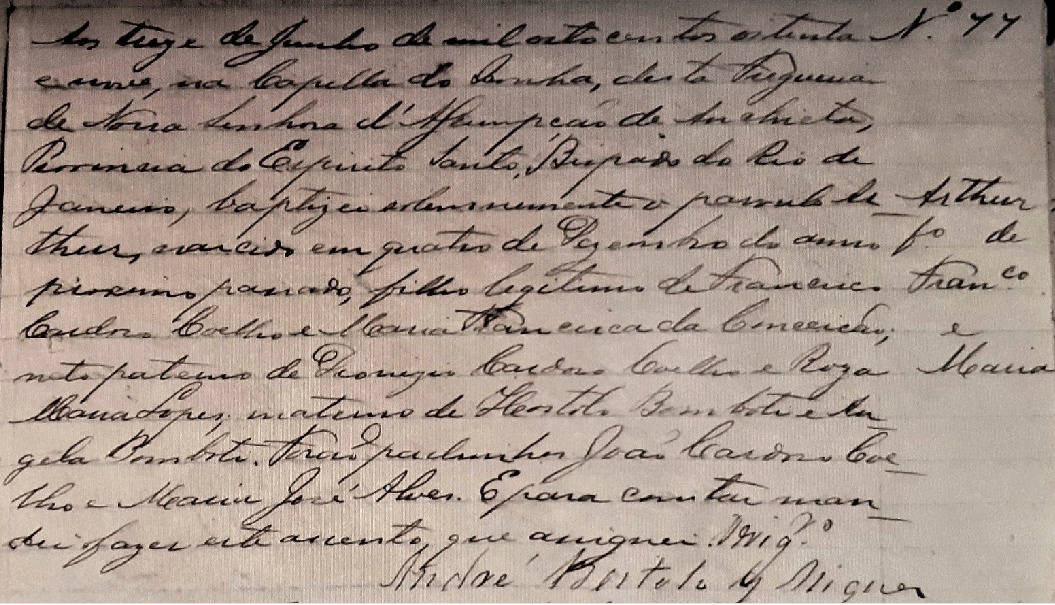 Aos treze de Junho de mil oito centos oitenta Nº 77
e nove, na Capella do Senhor, desta Freguesia
de Nossa Senhora d'Assumpção de Anchieta,
Provincia do Espirito Santo, Bispado do Rio de
Janeiro, baptizei solemnemente o parvulo Ar_ Arthur
thur, nascido em quatro de Dezembro do anno fº de
proximo passado, filho legitimo de Francisco Franco
Cardoso Coelho e Maria Francisca da Conceição; e
neto paterno de Cardoso Coelho e Roza Maria
Maria Lopes, materno de Bomboti e An_
gela Bomboti. Forão padrinhos João Cardoso Coe_
lho e Maria José Alves. E para constar man_
dei fazer este assento, que assignei. Vigº
André